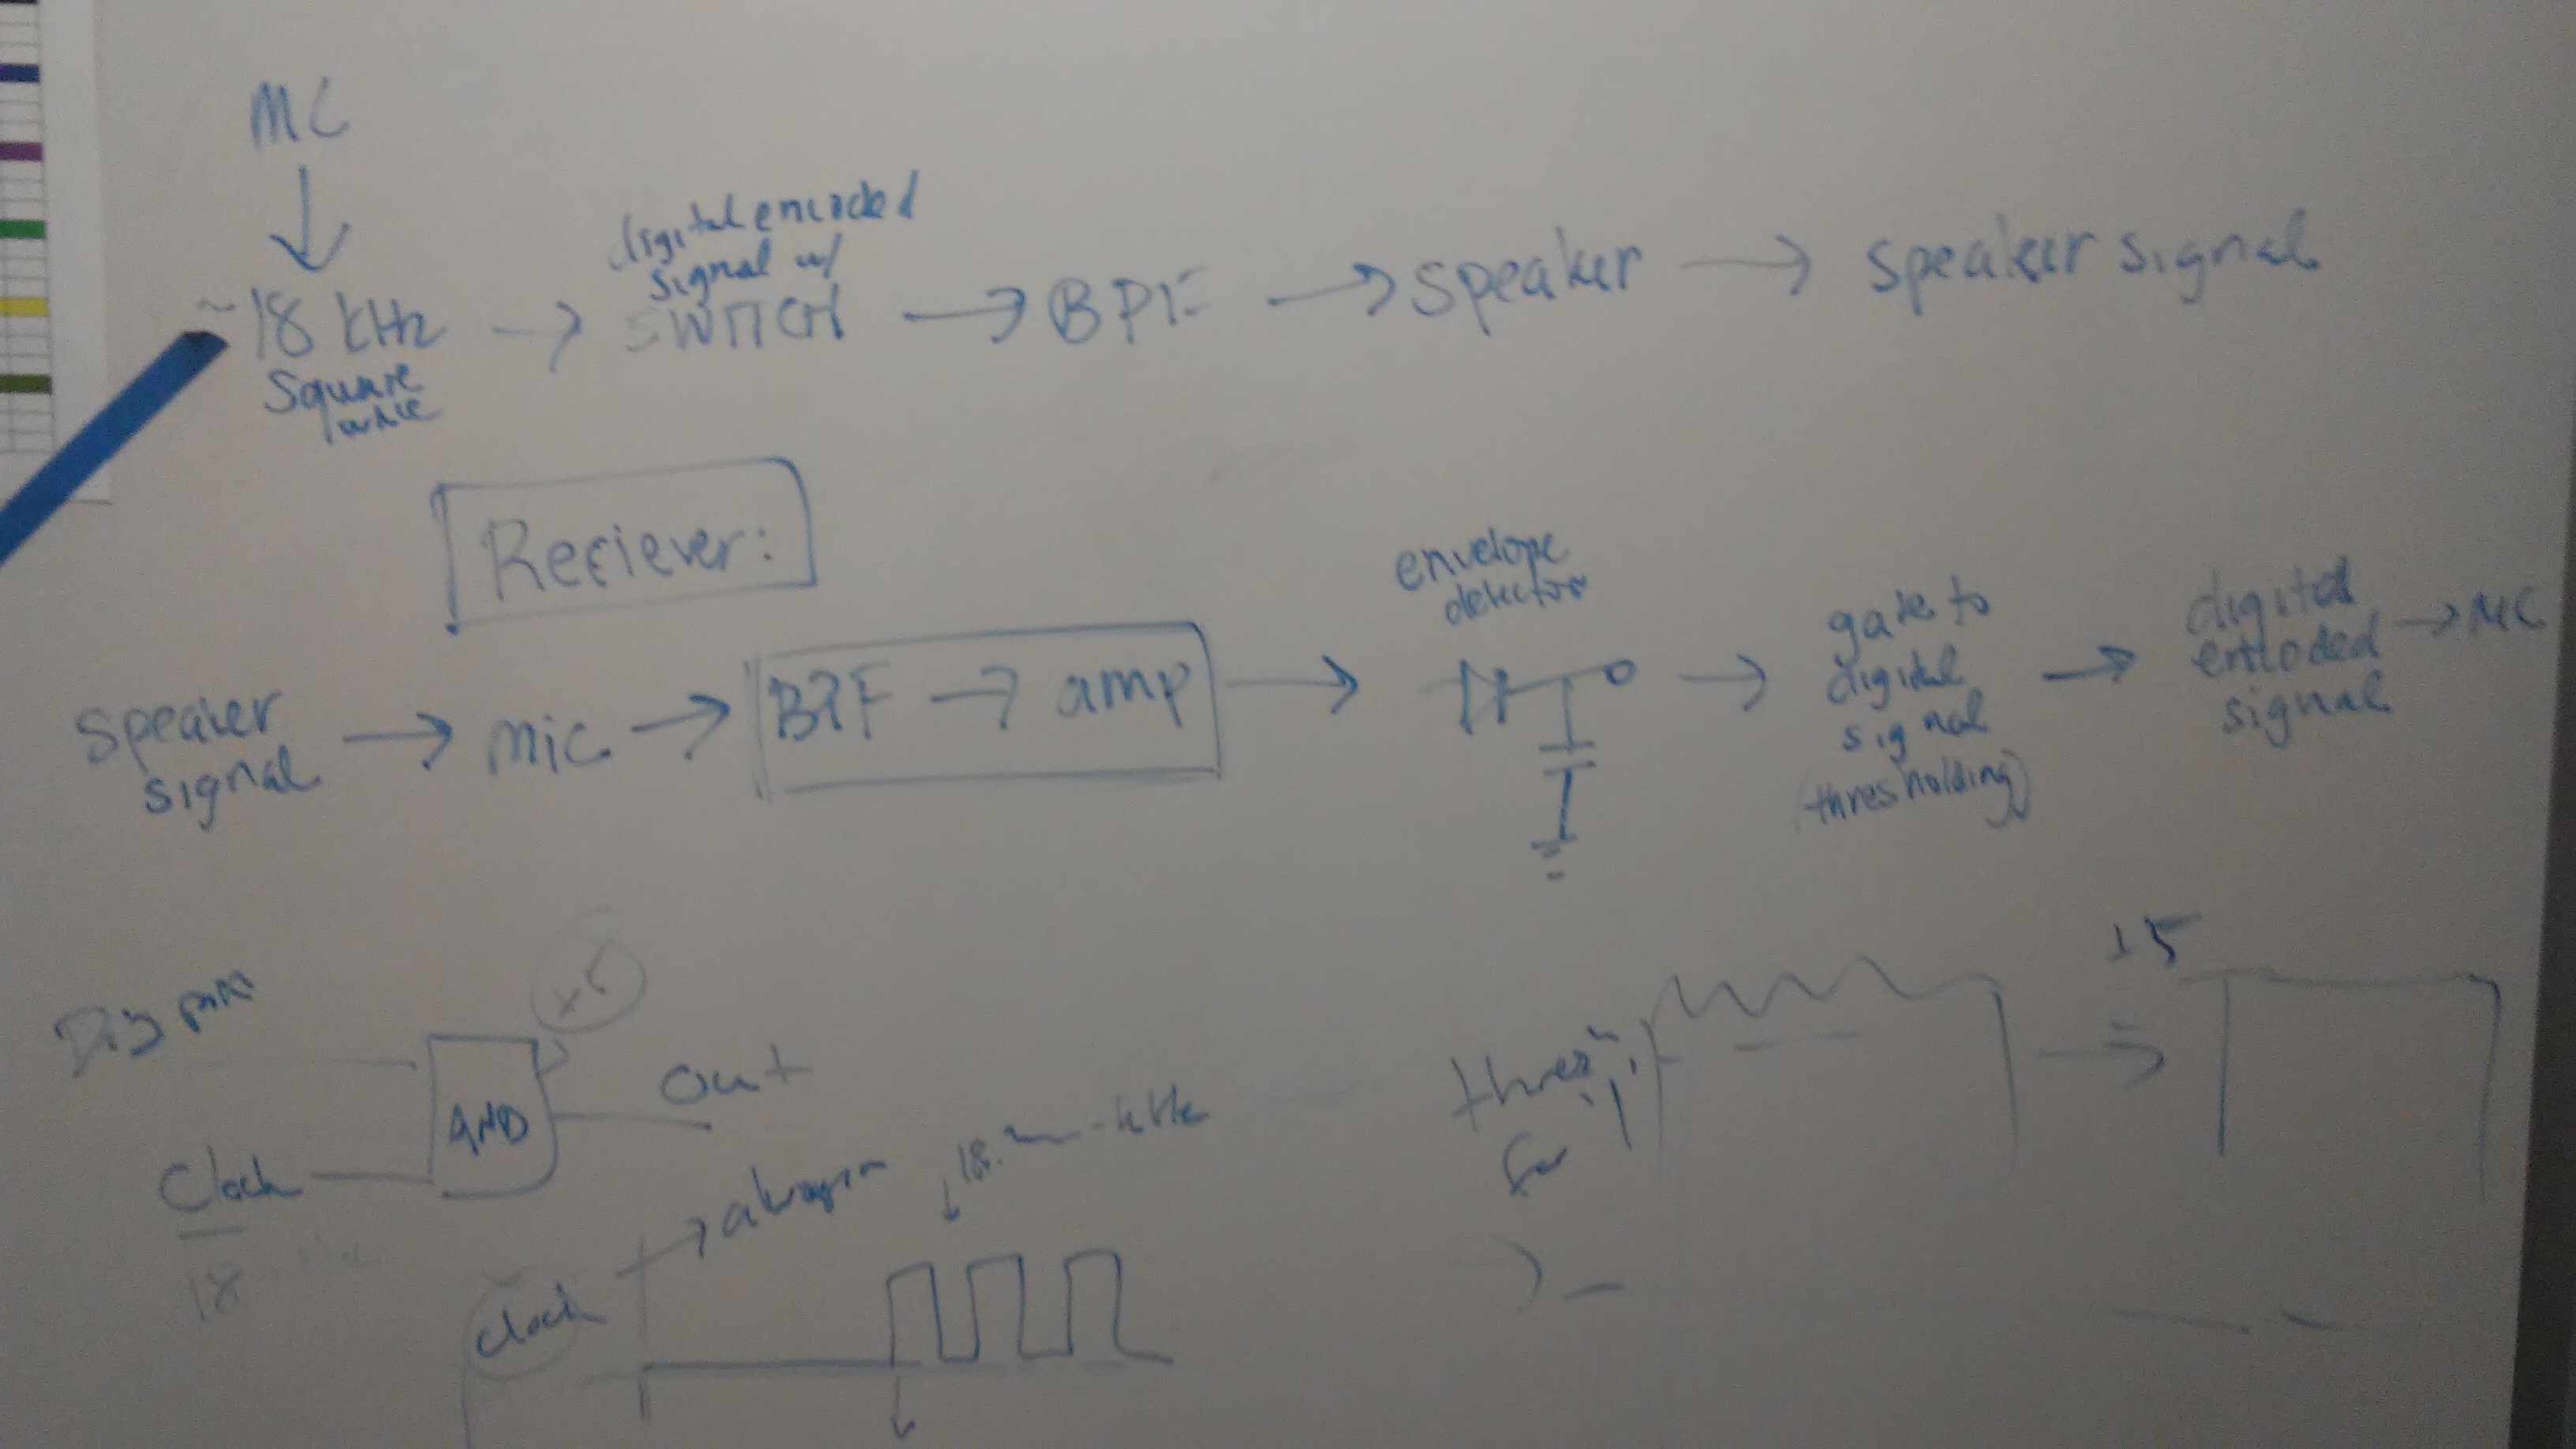 MC
~18 kHz
Square
wave
digital encoded
signal w/
SWITCH
BPF
speaker
speaker signal
Reciever:
speaker
signal
mic
BPF
amp
envelope
detector
gate to
digital
signal
(thresholding)
digital
encoded
signal
MC
AND
out
Clock
18
clock
18.
kHz
thres